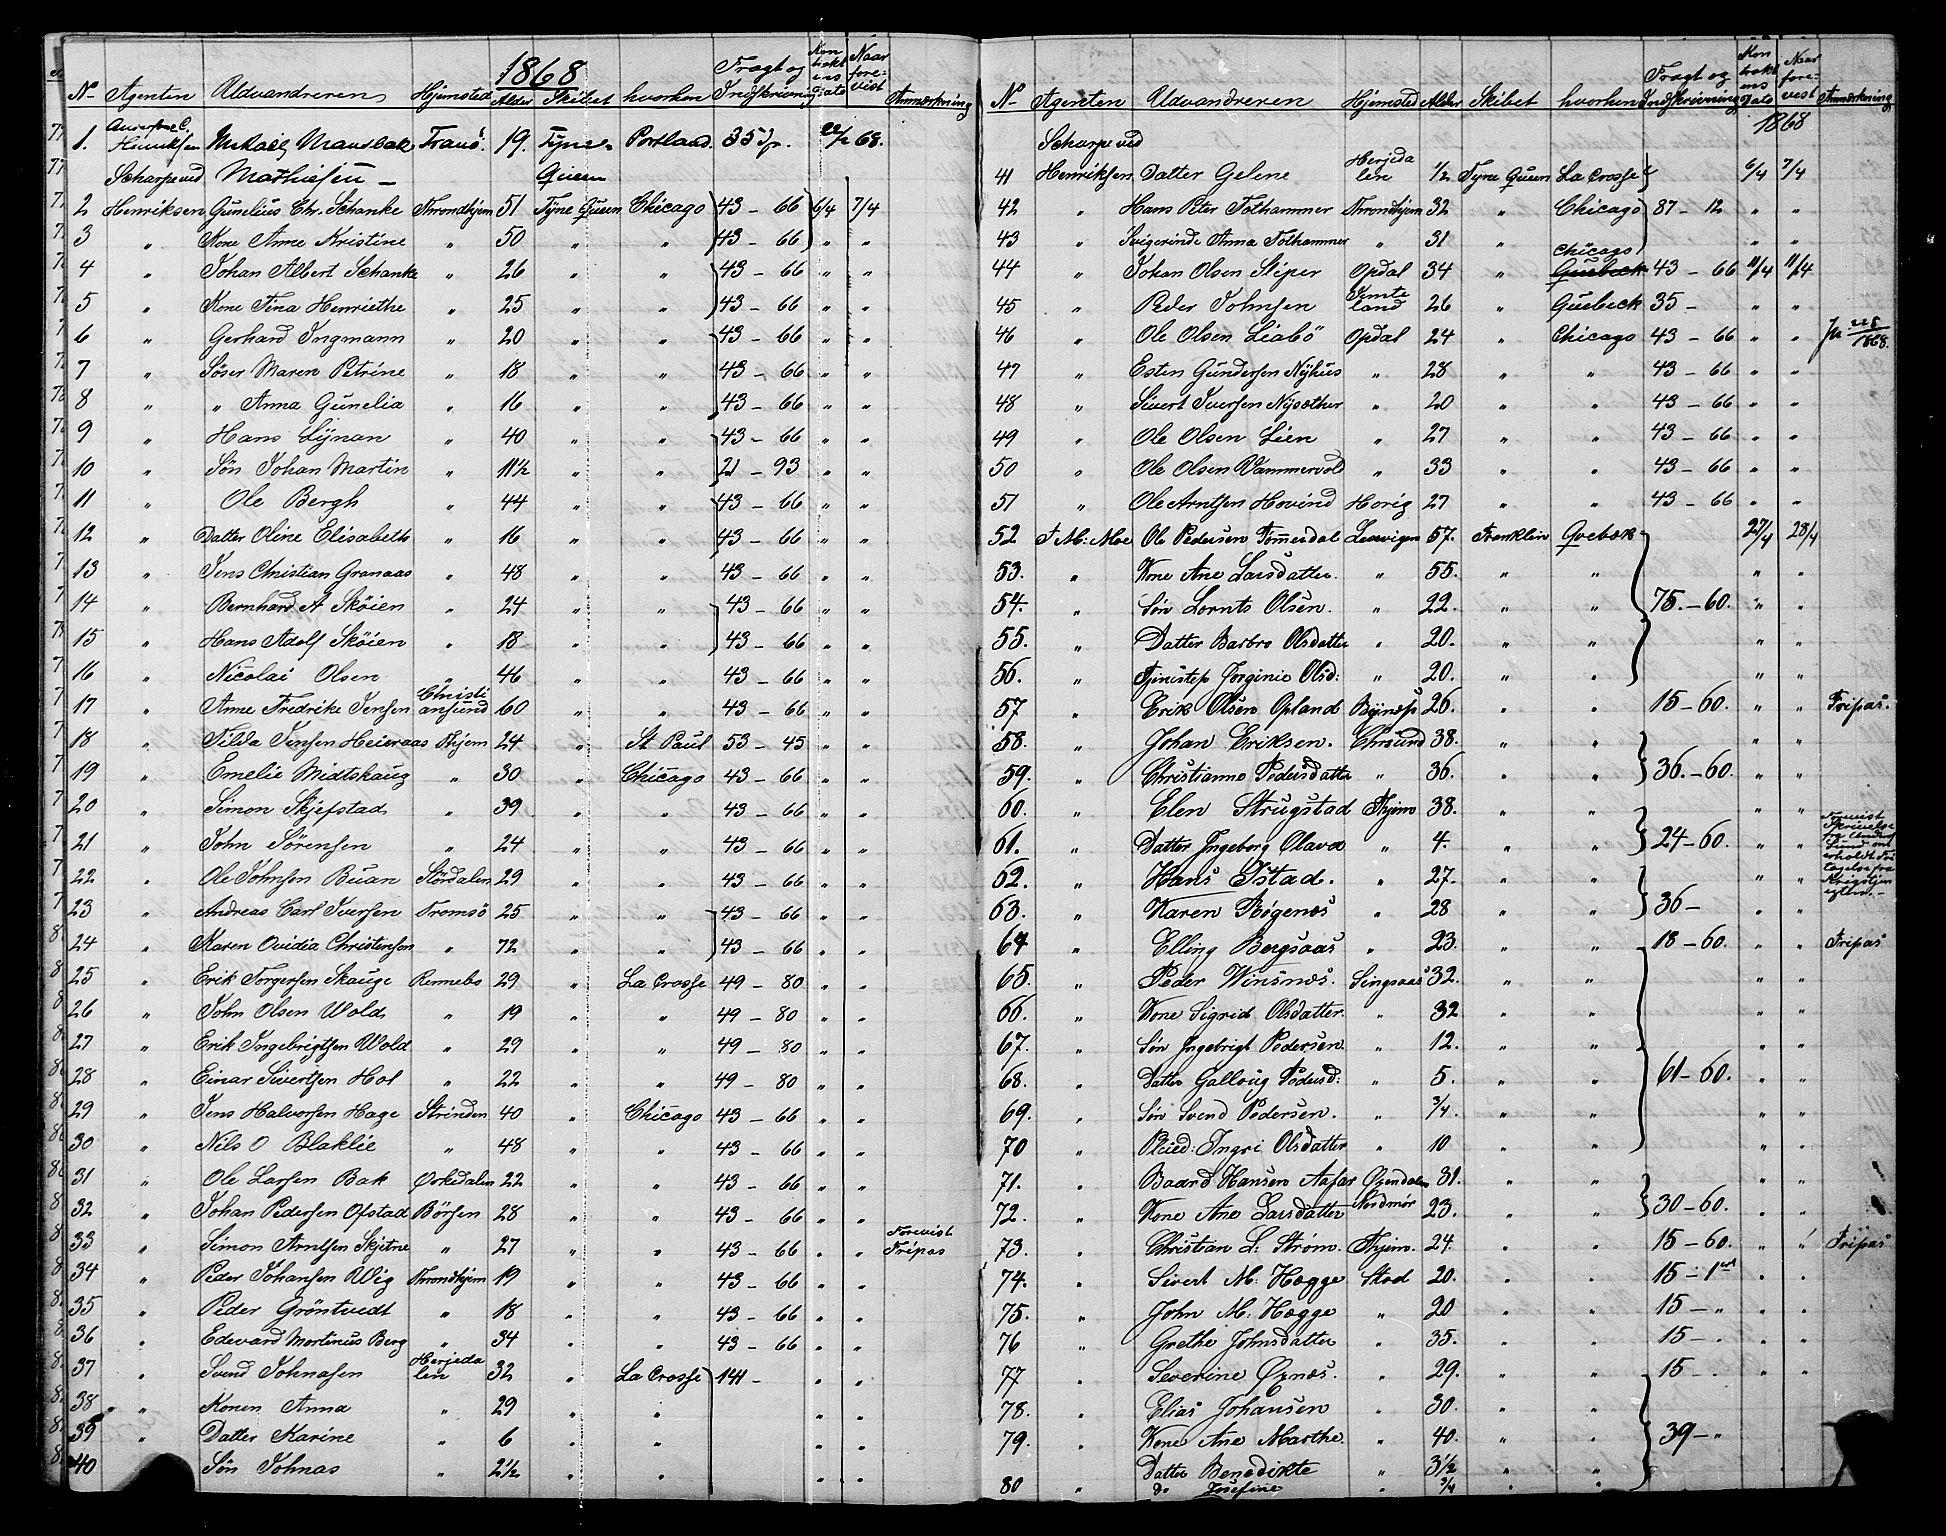 1868
No Agenten Udvandreren Hjemsted Alder Skibet hvorhen Fragt og Indskrivning Kontraktens Dato Naar forevist Anmærkning
1. Mikael Mausbak Tranö. 19. Tyne Portland 35 Sp. 22/2 68.
Scharpe ved Mathiesen — Queen
2 Henriksen Gunelius Chr. Schanke Throndhjem 51 Tyne Queen Chicago 43 – 66 6/4 7/4
3 " Kone Anne Kristine " 50 " " 43 – 66 " "
4 " Johan Albert Schanke " 26 " " 43 – 66 " "
5 " Kone Tina Henriethe " 25 " " 43 – 66 " "
6 " Gerhard Ingmann " 20 " " 43 – 66 " "
7 " Söser Maren Petrine " 18 " " 43 – 66 " "
8 " " Anna Gunelia " 16 " " 43 – 66 " "
9 " Hans Lynan " 40 " " 43 – 66 " "
10 " Sön Johan Martin " 11½ " " 21 – 93 " "
11 " Ole Bergh " 44 " " 43 – 66 " "
12 " Datter Oline Elisabeth " 16 " " 43 – 66 " "
13 " Jens Christian Granaas " 48 " " 43 – 66 " "
14 " Bernhard A Sköien " 24 " " 43 – 66 " "
15 " Hans Adolf Sköien " 18 " " 43 – 66 " "
16 " Nicolai Olsen " 46 " " 43 – 66 " "
17 " Anne Fredrike Jensen Christiansund 60 " " 43 – 66 " "
18 " Tilda Jensen Heieraas Thjem 24 " St Paul 53 – 45 " "
19 " Emelie Midtskaug " 30 " Chicago 43 – 66 " "
20 " Simon Skjefstad " 39 " " 43 – 66 " "
21 " John Sörensen " 24 " " 43 – 66 " "
22 " Ole Johnsen Buan Stördalen 29 " " 43 – 66 " "
23 " Andreas Carl Iversen Tromsö 25 " " 43 – 66 " "
24 " Karen Ovidia Christenson " 72 " " 43 – 66 " "
25 " Erik Torgersen Skauge Rennebo 29 " La Crosse 49 – 80 " "
26 " John Olsen Wold " 19 " " 49 – 80 " "
27 " Erik Ingebrigtsen Wold " 29 " " 49 – 80 " "
28 " Einar Sivertsen Hol " 22 " " 49 – 80 " "
29 " Jens Halvorsen Hage Strinden 40 " Chicago 43 – 66 " "
30 " Nils O Blaklie " 48 " " 43 – 66 " "
31 " Ole Larsen Bak Orkedalen 22 " " 43 – 66 " "
32 " Johan Pedersen Ofstad Börsen 28 " " 43 – 66 " "
33 " Simon Arntsen Skjetne " 27 " " 43 – 66 " " Forevist Fripas
34 " Peder Johansen Wig Throndhjem 19 " " 43 – 66 " "
35 " Peder Gröntvedt " 18 " " 43 – 66 " "
36 " Edevard Martinus Berg " 34 " " 43 – 66 " "
37 " Svend Johnasen Herjedalen 32 " La Crosse 141 – " "
38 " Konen Anna " 29 " " " "
39 " Datter Karine " 6 " " " "
40 " Sön Johnas " 2½ " " " "
No Agenten Udvandreren Hjemsted Alder Skibet hvorhen Fragt og Indskrivning Kontraktens Dato Naar forevist Anmærkning
1868
Scharpe ved
41 Henriksen Datter Gelene Herjedalen ½ Tyne Queen La Crosse 6/4 7/4
42 " Hans Peter Tolhammer Throndhjem 32 " Chicago 87 – 12 " "
43 " Svigerinde Anna Tolhammer " 31 " " "
44 " Johan Olsen Stiper Opdal 34 " Chicago Quebeck 43 – 66 11/4 11/4
45 " Peder Johnsen Jemteland 26 " Quebeck 35 – " "
46 " Ole Olsen Liabö Opdal 24 " Chicago 43 – 66 " "
47 " Esten Gundersen Nyhus " 28 " " 43 – 66 " "
48 " Sivert Iversen Nysæther " 20 " " 43 – 66 " "
49 " Ole Olsen Lien " 27 " " 43 – 66 " "
50 " Ole Olsen Vammervold " 33 " " 43 – 66 " "
51 " Ole Arntsen Hovind Horig 27 " " 43 – 66 " "
52 J M: Moe Ole Pedersen Tømmerdal Lensvigen 57. Franklin Qvebæk 27/4 28/4
53. " Kone Ane Larsdatter. " 55. " " " "
54. " Søn Lornts Olsen. " 22. " " 75. – 60. " "
55. " Datter Barbro Olsdatter " 20. " " " "
56. " Jorginie Olsd: " 20. " " " "
57 " Erik Olsen Opland 26. " " 15 – 60. " " Fripas.
58. " Johan Eriksen. Chrsund 38. " " " "
59. " Christianne Pedersdatter " 36. " " 36. – 60. " "
60. " Elen Strugstad Thjem 38. " " " "
61. " Datter Ingeborg Olava " 4. " " 24 – 60. " "
62. " Hans Ystad. " 27. " " " "
63. " Karen Bøgenæs " 28 " " 36 – " "
64 " Elling Bergsaas " 23. " " 18 – 60. " " Fripas
65. " Peder Winsnæs. Singsaas 32. " " " "
66. " Kone Sigrid Olsdatter. " 32 " " " "
67. " Søn Ingebrigt Pedersen " 12. " " " "
68. " Datter Gallaug Pedersd: " 5. " " 61 – 60. " "
69. " Søn Svend Pedersen. " 3/4. " " " "
70 " Pleied: Ingri Olsdatter " 10 " " " "
71. " Baard Hansen Aafar Øxendalen 31. " " " "
72. " Kone Ane Larsdatter Nordmør 23. " " 30 – 60. " "
73. " Christian L: Strøm. Thjem. 24. " " 15 – 60. " " Fripas
74. " Sivert M: Hegge Stod 20. " " 15 – " "
75. " John M. Hegge " 20 " " 15 – " " "
76 " Grethe Johnsdatter " 35. " " 15 – " " "
77 " Severine Øxnæs. " 29. " " 15 – " " "
78. " Elias Johansen " 30. " " " "
79. " Kone Ane Marthe " 40. " " 39 – " " "
" Datter Benedikte " 3½ " " " "
80 " Do Josefine " 3/4 " " " "